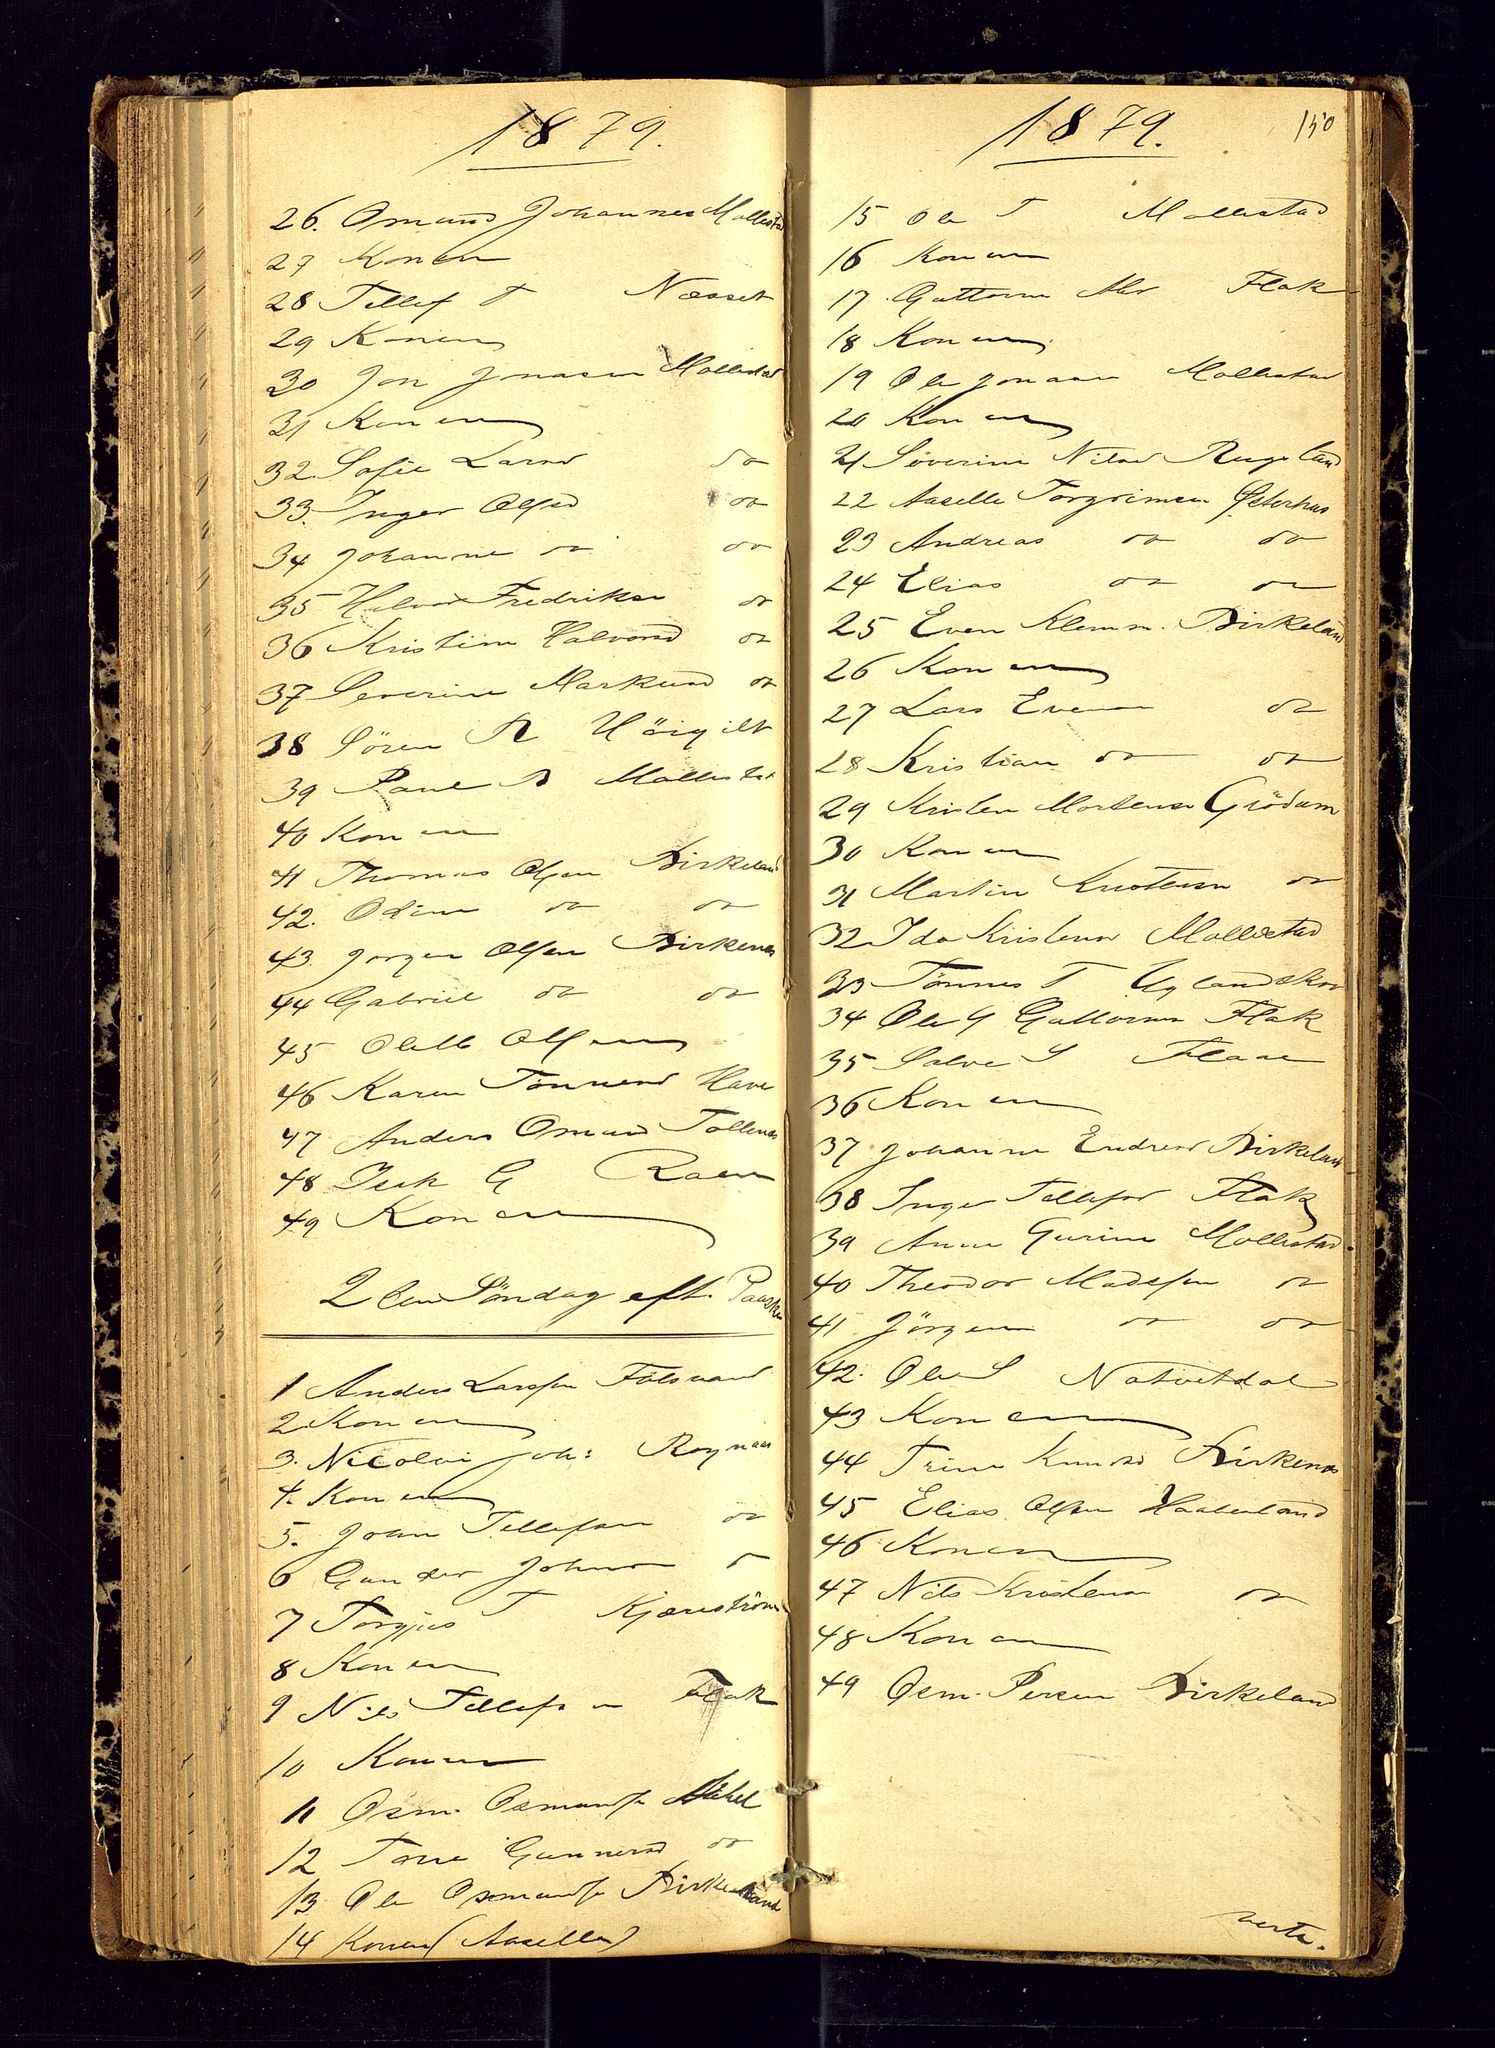 1879.
26. Omund Johannes Mollestad
27 Konen
28 Tellef T Næsset
29 Konen
30 Jon Jonasen Mollestad
31 Konen
32. Sofie Larsd do
33. Inger Olsd do
34 Johanne do do
35 Halvor Fredriksen do
36 Kristine Halvorsd do
37 Severine Markusd do
38 Sören A Höigilt
39 Paul B Mollestad
40 Konen
41 Thomas Olsen Birkeland
42. Odin do do
43 Jörgen Olsen Birkenes
44 Gabriel do do
45 Olette Olsen
46 Karen Tønnesd Have
47 Anders Omund Tollenes
48 Isak G
49 Konen
2den Söndag eft. Paaske
1 Anders Larsen Fölsvand
2 Konen
3. Nicolai Joh: Røynaas
4. Konen
5. John Tellefsen do
6 Gunder Johnsen do
7 Torgius T Kjænström
8 Konen
9 Nils Tellefsen Flak
10 Konen
11 Osm. Osmundsen
12 Tone Gunnersd do
13 Ole Osmundsen Birkeland
14 Konen Aaselle
1879.
150
15 Ole T Mollestad
16 Konen
17. Guttorm Flak
18 Konen
19 Ole Jonasen Mollestad
20 Konen
21 Söverine Nilsd Rugsland
22 Aaselle Torgrimsen Østerhus
23 Andreas do do
24 Elias do do
25 Even Klemm. Birkeland
26 Konen
27 Lars Evensen do
28 Kristian do do
29 Kristen Mortensen Grödum
30 Konen
31 Martin Kristensen do
32 Ida Kristensd Mollestad
33 Tønnes T Uglandskov
34 Ole G Guttormsen Flak
35 Salve S Flaae
36 Konen
37 Johanne Endresd Birkeland
38 Inger Tellefsd Flak
39 Anne Gurine Mollestad.
40 Theodor Madssen do
41 Jörgen do do
42. Ole S Natvetdal
43 Konen
44 Trine Knudsd Birkenes
45 Elias Olsen Haaberland
46 Konen
47 Nils Kristensen do
48 Konen
49 Osm. Persen Birkeland
verte.